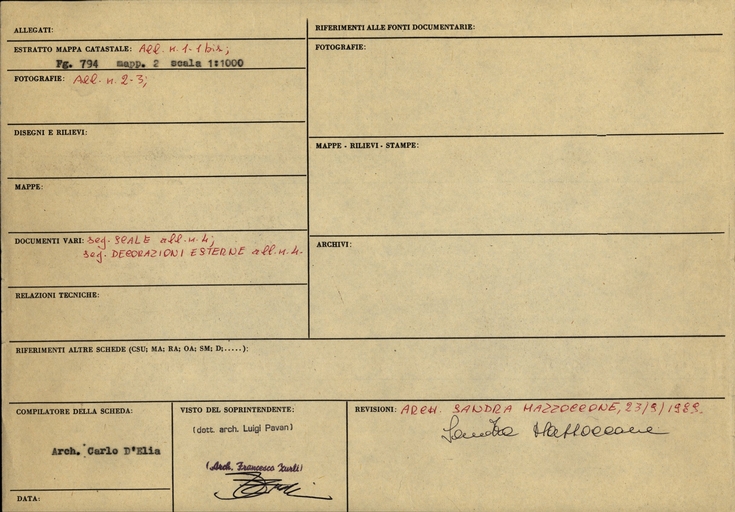 ALLEGATI:
ESTRATTO MAPPA CATASTALE: All. n. 1-1 bis;
Fg. 794 mapp. 2 scala 1:1000
FOTOGRAFIE: All. n. 2-3;
DISEGNI E RILIEVI:
MAPPE:
DOCUMENTI VARI: seg. SCALE all. n. 4;
seg. DECORAZIONI ESTERNE all. n. 4.
RELAZIONI TECNICHE:
RIFERIMENTI ALLE FONTI DOCUMENTARIE:
FOTOGRAFIE:
MAPPE - RILIEVI - STAMPE:
ARCHIVI:
RIFERIMENTI ALTRE SCHEDE (CSU; MA; RA; OA; SM; D;.....):
COMPILATORE DELLA SCHEDA:
Arch. Carlo D'Elia
DATA:
VISTO DEL SOPRINTENDENTE:
(dott. arch. Luigi Pavan)
(Arch. Francesco
REVISIONI: ARCH. SANDRA MAZZOCCONE, 23/9/1989
Sandra Mazzoccone